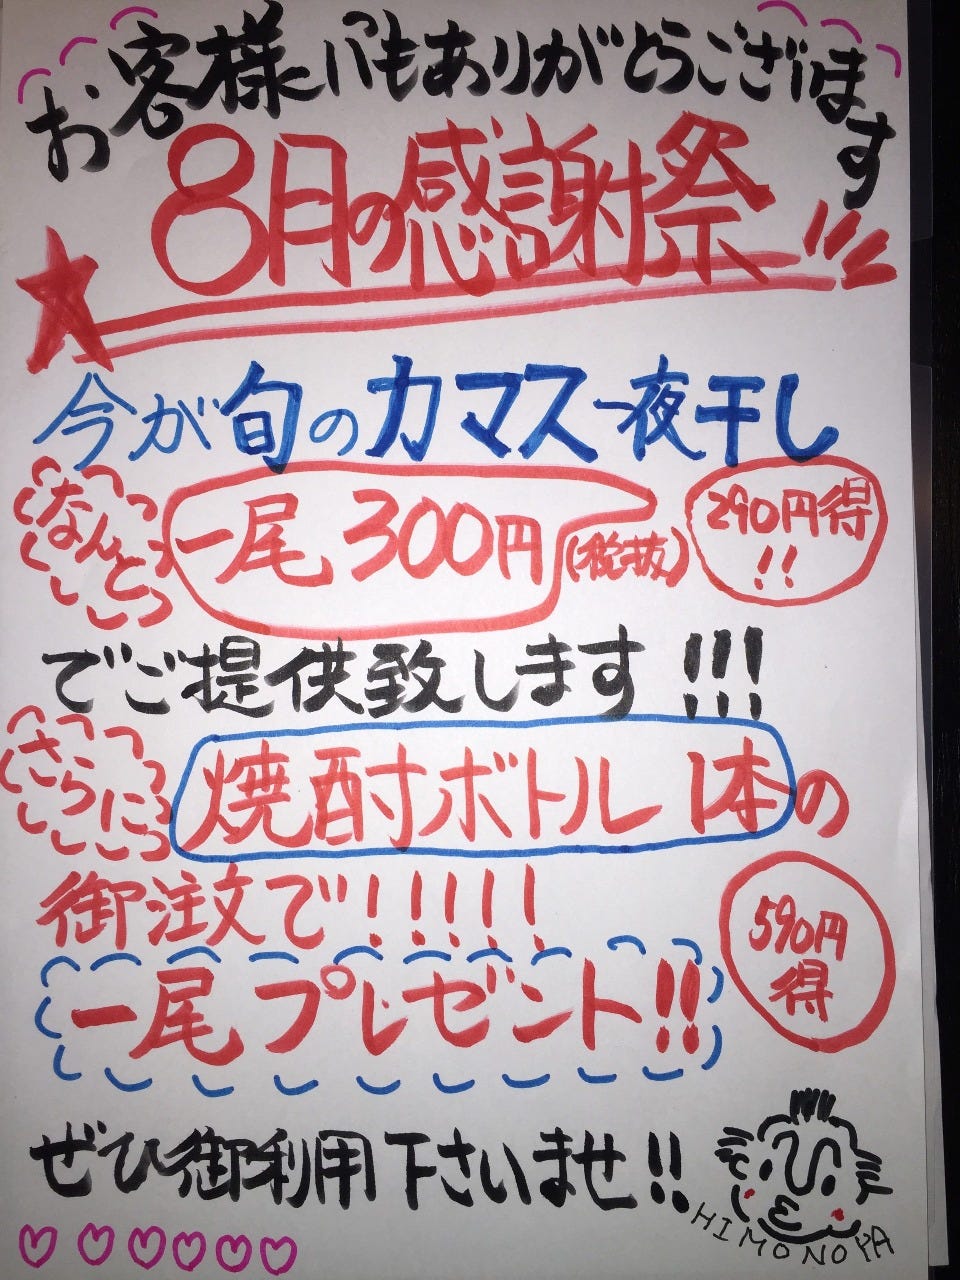 お客様いつもありがとうございます
8月の感謝祭
今が旬のカマス一夜干し
なんと
一尾300円(税抜)
290円得!!
でご提供致します!!!
さらに
焼酎ボトル1本の
御注文で!!!!!
一尾プレゼント!!
590円得
ぜひ御利用下さいませ!!
HIMONOYA